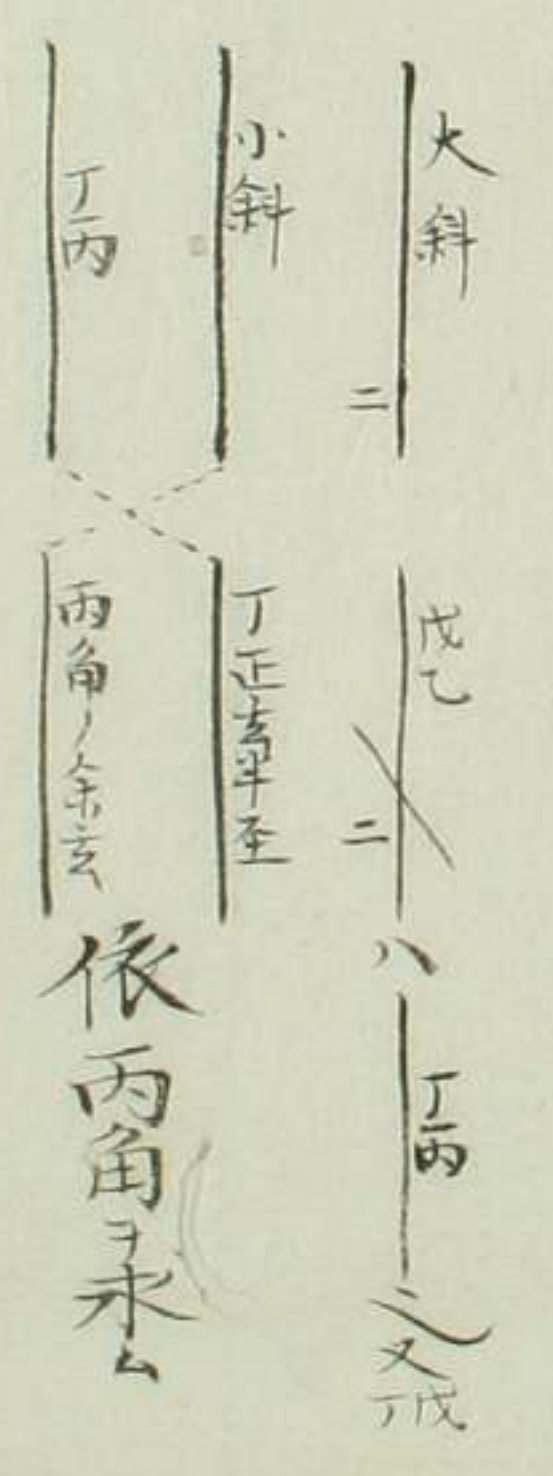 大斜 二 戊乙 二 八 丁丙 之又丁戊
小斜 丁正玄半至
丁丙 丙角ノ余玄
依丙角ヲ求ム